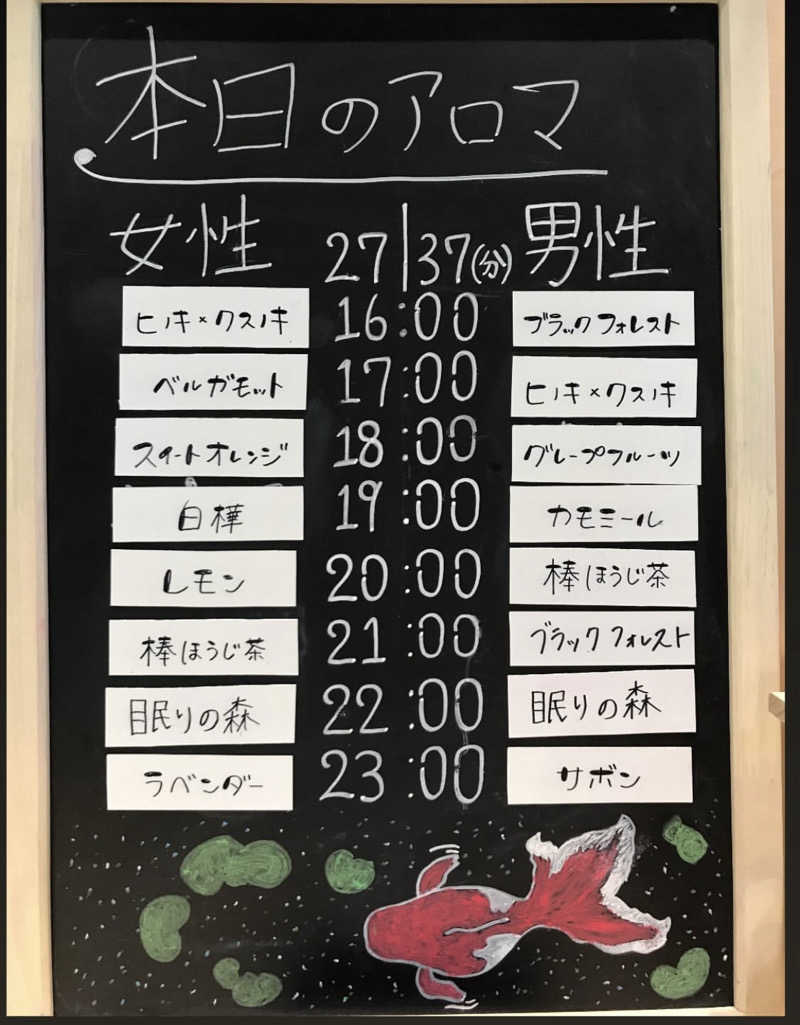 本日のアロマ
女性 27|37(分) 男性
ヒノキ×クスノキ 16:00 ブラックフォレスト
ベルガモット 17:00 ヒノキ×クスノキ
スイートオレンジ 18:00 グレープフルーツ
白樺 19:00 カモミール
レモン 20:00 棒ほうじ茶
棒ほうじ茶 21:00 ブラックフォレスト
眠りの森 22:00 眠りの森
ラベンダー 23:00 サボン